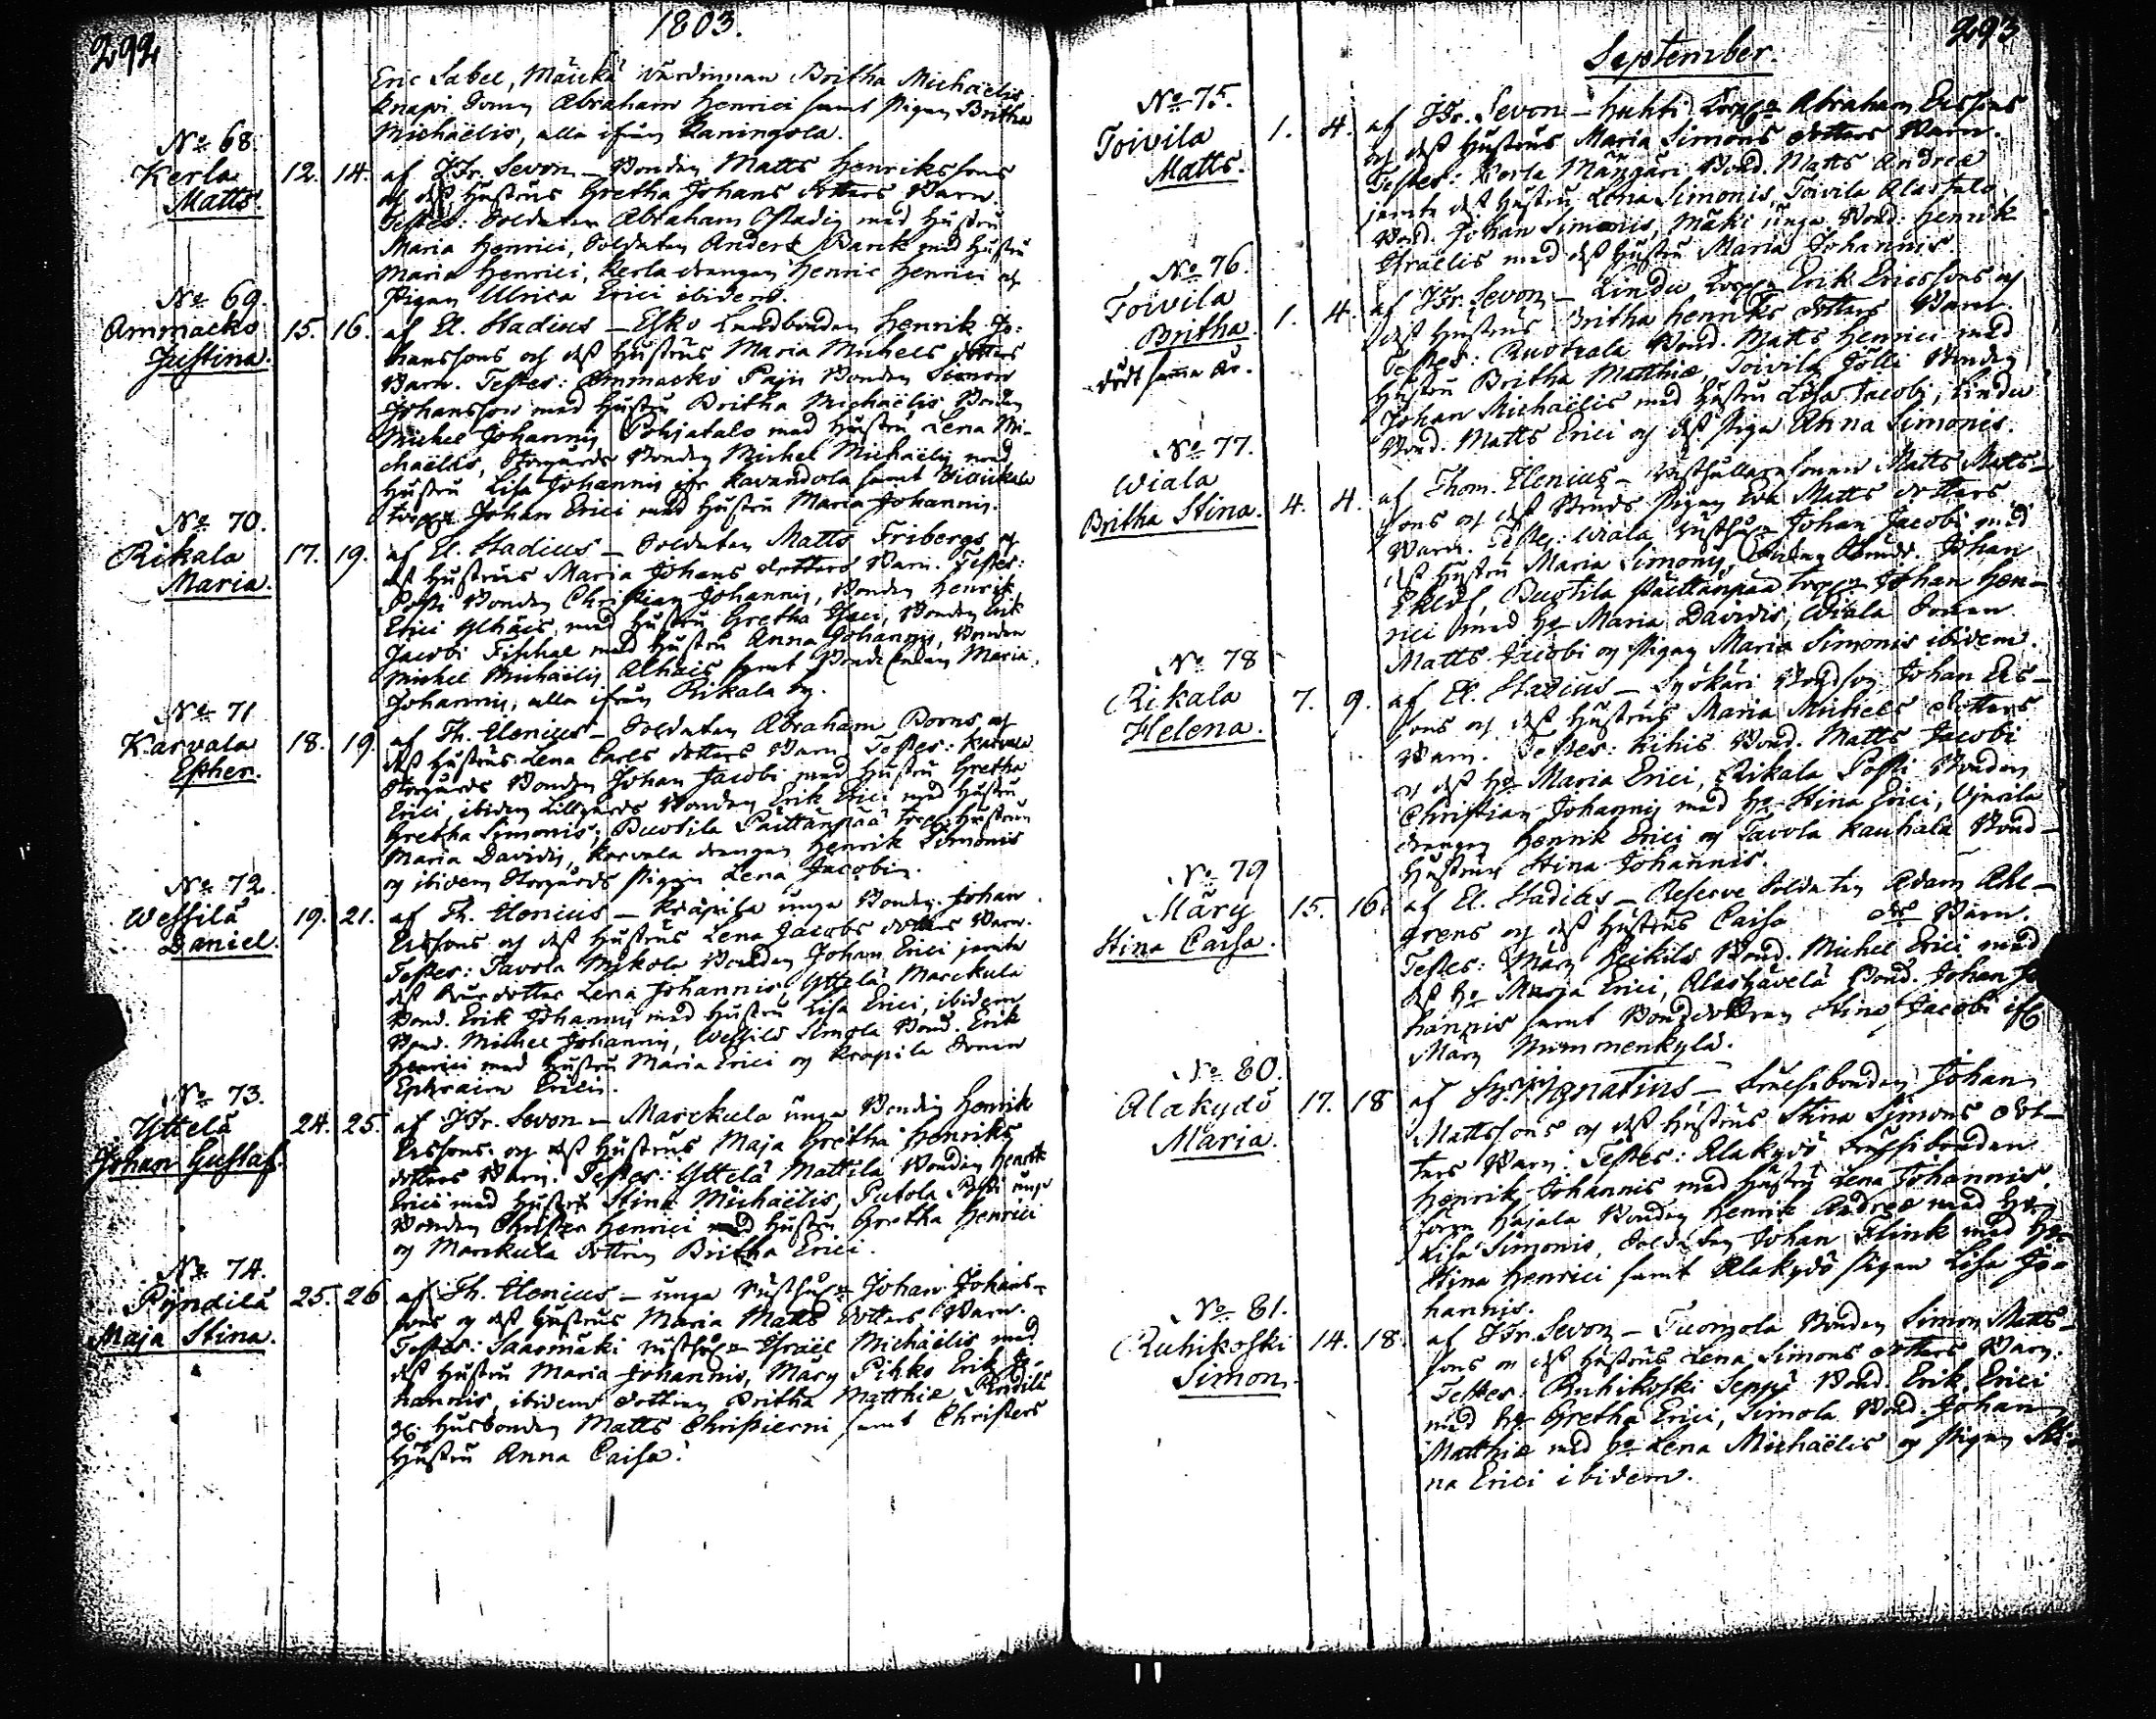 292
1803.
Eric Sabel, Mäickä värdinnan Britha Michaëlis
Knapi Sonen Abraham Henrici samt Pigan Britha
Michaëlis, alla ifrån Kaningola.
No 68.
Kerla
Matts.
12. 14. af Hr. Sevon – Bonden Matts Henrikssons
och dess Hustrus Gretha Johans dotters Barn.
Testes: Soldaten Abraham Ostadig med Hustru
Maria Henrici, Soldaten Anders Barck med Hustru
Maria Henrici, Kerla drängen Henric Henrici och
Pigan Ulrica Erici ibidem.
No 69.
Ammacko
Justina.
15. 16. af El. Stadius – Esko Landbonden Henrik Jo:
hanssons och dess Hustrus Maria Michels dotters
Barn. Testes: Ammacko Paju Bonden Simon
Johansson med Hustru Britha Michaëlis Bonden
Michel Johannis Pohjatalo med Hustru Lena Mi-
chaëlis, Storgårds Bonden Michel Michaëlis med
Hustru Lisa Johannis ifr. Kavandola samt
Johan Erici med Hustru Maria Johannis.
No 70.
Rikala
Maria.
17. 19. af El. Stadius – Soldaten Matts Fribergs och
dess Hustrus Maria Johans dotters Barn. Testes:
Posti Bonden Christian Johannis, Bonden Henrik
Erici Ylhäis, med Hustru Gretha Isaci, Bonden Erik
Jacobi Tiskal med Hustru Anna Johannis, Bonden
Michel Michaëlis Alhais samt Maria
Johannis, alla ifrån Rikala by.
No 71
Karvala
Esther.
18. 19. af Th. Elenius – Soldaten Abraham Borns och
dess Hustrus Lena Carls dotters Barn. Testes: Karvala
Storgårds Bonden Johan Jacobi med Hustru Gretha
Erici, ibidem Lillgårds Bonden Erik Erici med Hustru
Gretha Simonis; Buotila Päittänpää Hustrun
Maria Davidis, Karvala drängen Henrik Simonis
och ibidem Storgårds Pigan Lena Jacobi.
No 72.
Wessilä
Daniel.
19. 21. af Th. Elenius – Kräpilä unga Bonden Johan
Erssons och dess Hustrus Lena Jacobs dotters Barn.
Testes: Tavola Mikola Bonden Johan Erici jemte
dess dotter Lena Johannis, Yttelä Marckula
Bond. Erik Johannis med Hustru Lisa Erici, ibidem
Bond. Michel Johannis, Wessilä Simola Bond. Erik
Henrici med Hustru Maria Erici och Krapila Sonen
Ephraim Erici.
No 73.
Yttelä
Johan Gustaf.
24. 25. af Hr. Sevon – Marckula unga Bonden Henrik
Erssons och dess Hustrus Maja Gretha Henriks
dotters Barn. Testes: Yttelä Mattila Bonden Henrik
Erici med Hustru Stina Michaëlis, Putola Posti unga
Bonden Christer Henrici med Hustru Gretha Henrici
och Marckula dottren Britha Erici.
No 74.
Pyndilä
Maja Stina.
25. 26 af Th. Elenius – unga Johan Johans-
sons och dess Hustrus Maria Matts dotters Barn.
Testes: Saaromäki Israël Michaëlis med
dess Hustru Maria Johannis, Märy Pihko Erik Jo-
hannis, ibidem dottren Britha Matthiæ, Pändilä
Husbonden Matts Christierni samt Christers
Hustru Anna Caisa.
293
September.
No 75.
Toivila
Matts.
1. 4. af Hr. Sevon – Huhti Abraham Erssons
och dess Hustrus Maria Simons dotters Barn.
Testes: Kerla Mängäri Bond. Matts Andreæ
jemte dess Hustru Lena Simonis, Toivila Alastalo
Bond. Johan Simonis, Mäki unga Bond. Henrik
Israelis med dess Hustru Maria Johannis.
No 76.
Toivila
Britha.
dödt samma år.
1. 4. af Hr. Sevon – Lindu Erik Ericssons och
dess Hustrus Britha Henriks dotters Barn
Testes: Ruotzala Bond. Matts Henrici med
Hustru Britha Matthiæ, Toivila Jölli Bonden
Johan Michaëlis med Hustru Lisa Jacobi, Lindu
Bond. Matts Erici och dess Piga Anna Simonis.
No 77.
Wiala
Britha Stina.
4. 4. af Thom. Elenius – Rusthållaresonen Matts Matts-
sons och dess Bruds Pigan Eva Matts dotters
Barn. Testes: Wiala Johan Jacobi med
dess Hustru Maria Simonis, Johan
Eklöf, Buotila Päittänpää Johan Hen-
rici med Ho Maria Davidis, Wiala Sonen
Matts Jacobi och Pigan Maria Simonis ibidem.
No 78
Rikala
Helena.
7. 9. af El. Stadius – Syökäri Bondson Johan Ers-
sons och dess Hustrus Maria Michels dotters
Barn. Testes: Kihis Bond. Matts Jacobi
och dess Ho Maria Erici, Rikala Posti Bonden
Christian Johannis med Ho Stina Erici, Ujarila
drängen Henrik Erici och Tavola Kauhala Bond-
Hustrun Stina Johannis.
No 79
Märy
Stina Caisa.
15. 16. af El. Stadius – Reserve Soldaten Adam Ahl-
grens och dess Hustrus Caisa drs Barn.
Testes: Märy Bond. Michel Erici med
dess Ho Maria Erici, Alastävelä Bond. Johan Jo
hannis samt Stina Jacobi
Märy Nummenkylä.
No 80.
Alakydö
Maria.
17. 18 af Ignatius – Frälsebonden Johan
Mattssons och dess Hustrus Stina Simons dot-
ters Barn. Testes: Alakydö Frälsebonden
Henrik Johannis med Hustru Lena Johannis.
Hajala Bonden Henrik Andreæ med Ho
Lisa Simonis, Soldaten Johan Flink med Ho
Stina Henrici samt Alakydö Pigan Lisa Jo-
hannis.
No 81.
Ruhikoski
Simon.
14. 18. af Hr. Sevon – Tuomola Bonden Simon Matts-
sons och dess Hustrus Lena Simons dotters Barn.
Testes: Ruhikoski Seppä Bond. Erik Erici
med Ho Gretha Erici, Simola Bond. Johan
Matthiæ med Ho Lena Michaëlis och Pigan Sti-
na Erici ibidem.